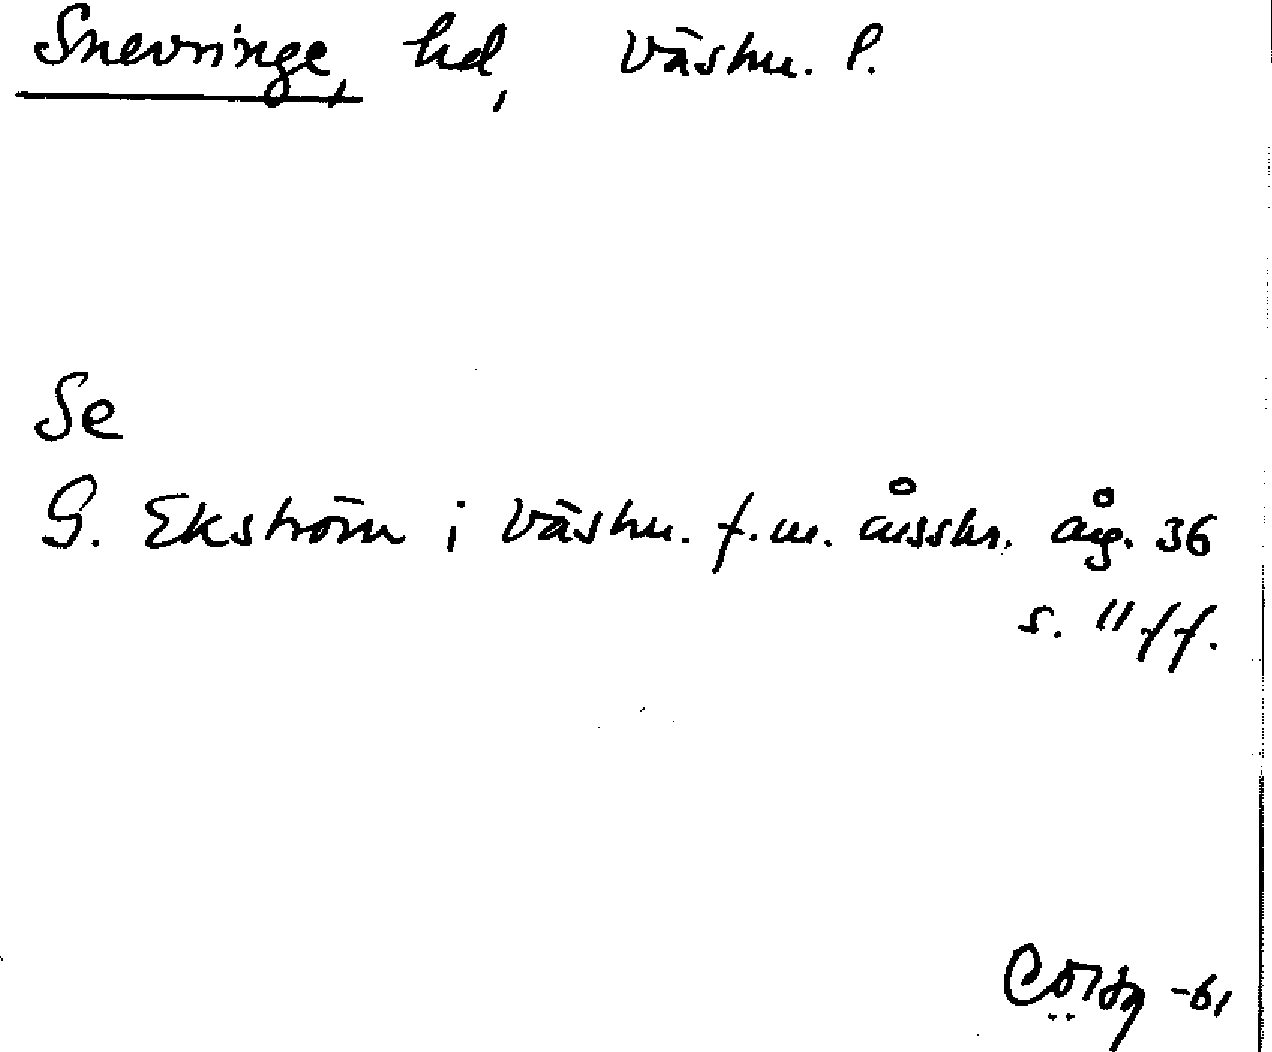 Snevringe, hd, Västm. l.
Se
G. Ekström i Västm. f.m. årsskr. årg. 36
s. 11 ff.
-61